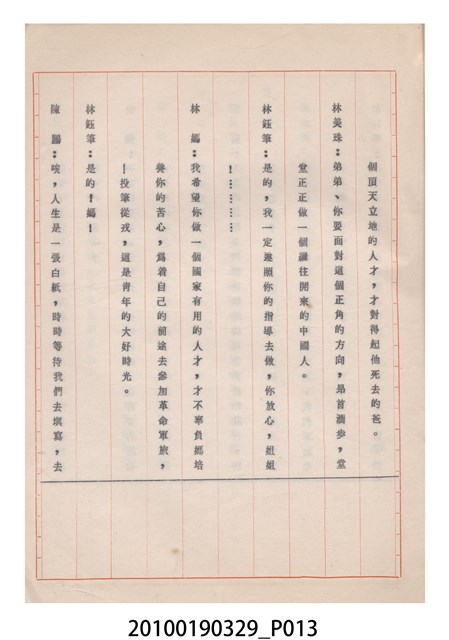 個頂天立地的人才,才對得起他死去的爸。
林美珠:弟弟、你要面對這個正角的方向,昂首濶步,堂
堂正正做一個繼往開來的中國人。
林鈺筆:是的,我一定遵照你的指導去做,你放心,姐姐
!…………
林 媽:我希望你做一個國家有用的人才,才不辜負媽培
養你的苦心,爲着自己的前途去參加革命軍旅,
!投筆從戎,這是青年的大好時光。
林鈺筆:是的!媽!
陳 :唉,人生是一張白紙,時時等待我們去填寫,去
20100190329_P013